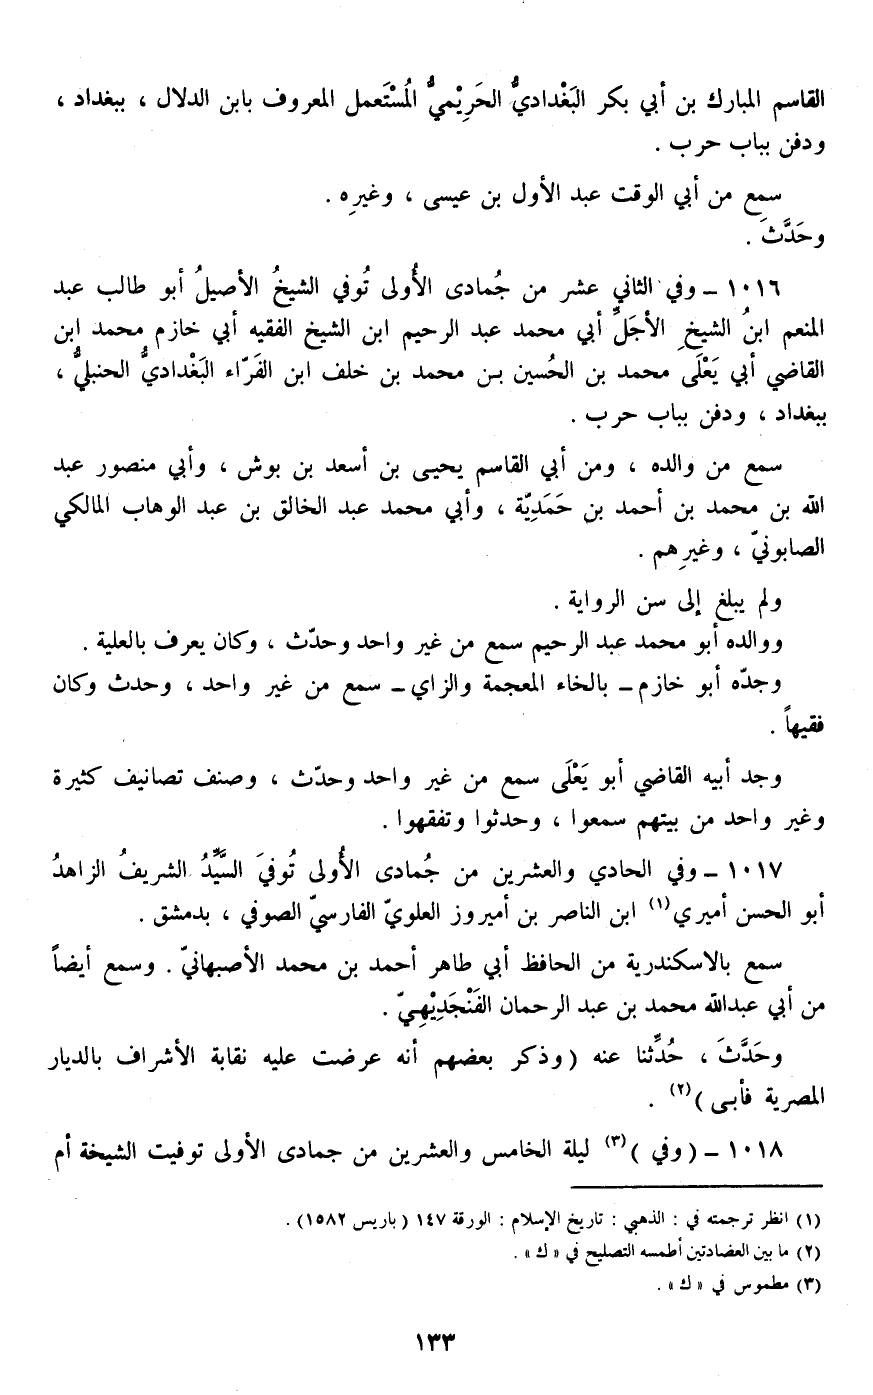 القاسم المبارك بن أبي بكر البَغْداديُّ الحَرِيْميُّ المُسْتَعمل المعروف بابن الدلال ، ببغداد ،
ودفن بباب حرب .
سمع من أبي الوقت عبد الأول بن عيسى ، وغيرِه .
وحَدَّثَ .
١٠١٦ ــ وفي الثاني عشر من جُمادى الأُولى تُوفي الشيخُ الأصيلُ أبو طالب عبد
المنعم ابنُ الشيخِ الأجَلِّ أبي محمد عبد الرحيم ابن الشيخ الفقيه أبي خازم محمد ابن
القاضي أبي يَعْلَى محمد بن الحُسين بـن محمد بن خلف ابن الفَرّاء البَغْداديُّ الحنبليُّ ،
ببغداد ، ودفن بباب حرب .
سمع من والده ، ومن أبي القاسم يحيـى بن أسعد بن بوش ، وأبي منصور عبد
الله بن محمد بن أحمد بن حَمَدِيّة ، وأبي محمد عبد الخالق بن عبد الوهاب المالكي
الصابونيّ ، وغيرِهم .
ولم يبلغ إلى سن الرواية .
ووالده أبو محمد عبد الرحيم سمع من غير واحد وحدّث ، وكان يعرف بالعلية .
وجدّه أبو خازم ــ بالخاء المعجمة والزاي ــ سمع من غير واحد ، وحدث وكان
فقيهاً .
وجد أبيه القاضي أبو يَعْلَى سمع من غير واحد وحدّث ، وصنف تصانيف كثيرة
وغير واحد من بيتهم سمعوا ، وحدثوا وتفقهوا .
١٠١٧ ــ وفي الحادي والعشرين من جُمادى الأُولى تُوفيَ السَّيِّدُ الشريفُ الزاهدُ
أبو الحسن أميري(١) ابن الناصر بن أميروز العلويّ الفارسيّ الصوفي ، بدمشق .
سمع بالاسكندرية من الحافظ أبي طاهر أحمد بن محمد الأصبهانيّ . وسمع أيضاً
من أبي عبدالله محمد بن عبد الرحمان الفَنْجَدِيْهِيّ .
وحَدَّثَ ، حُدِّثنا عنه (وذكر بعضهم أنه عرضت عليه نقابة الأشراف بالديار
المصرية فأبـى )(٢) .
١٠١٨ ــ (وفي )(٣) ليلة الخامس والعشرين من جمادى الأولى توفيت الشيخة أم
(١) انظر ترجمته في : الذهبي : تاريخ الإسلام : الورقة ١٤٧ (باريس ١٥٨٢) .
(٢) ما بين العضادتين أطمسه التصليح في «ك» .
(٣) مطموس في «ك» .
١٣٣